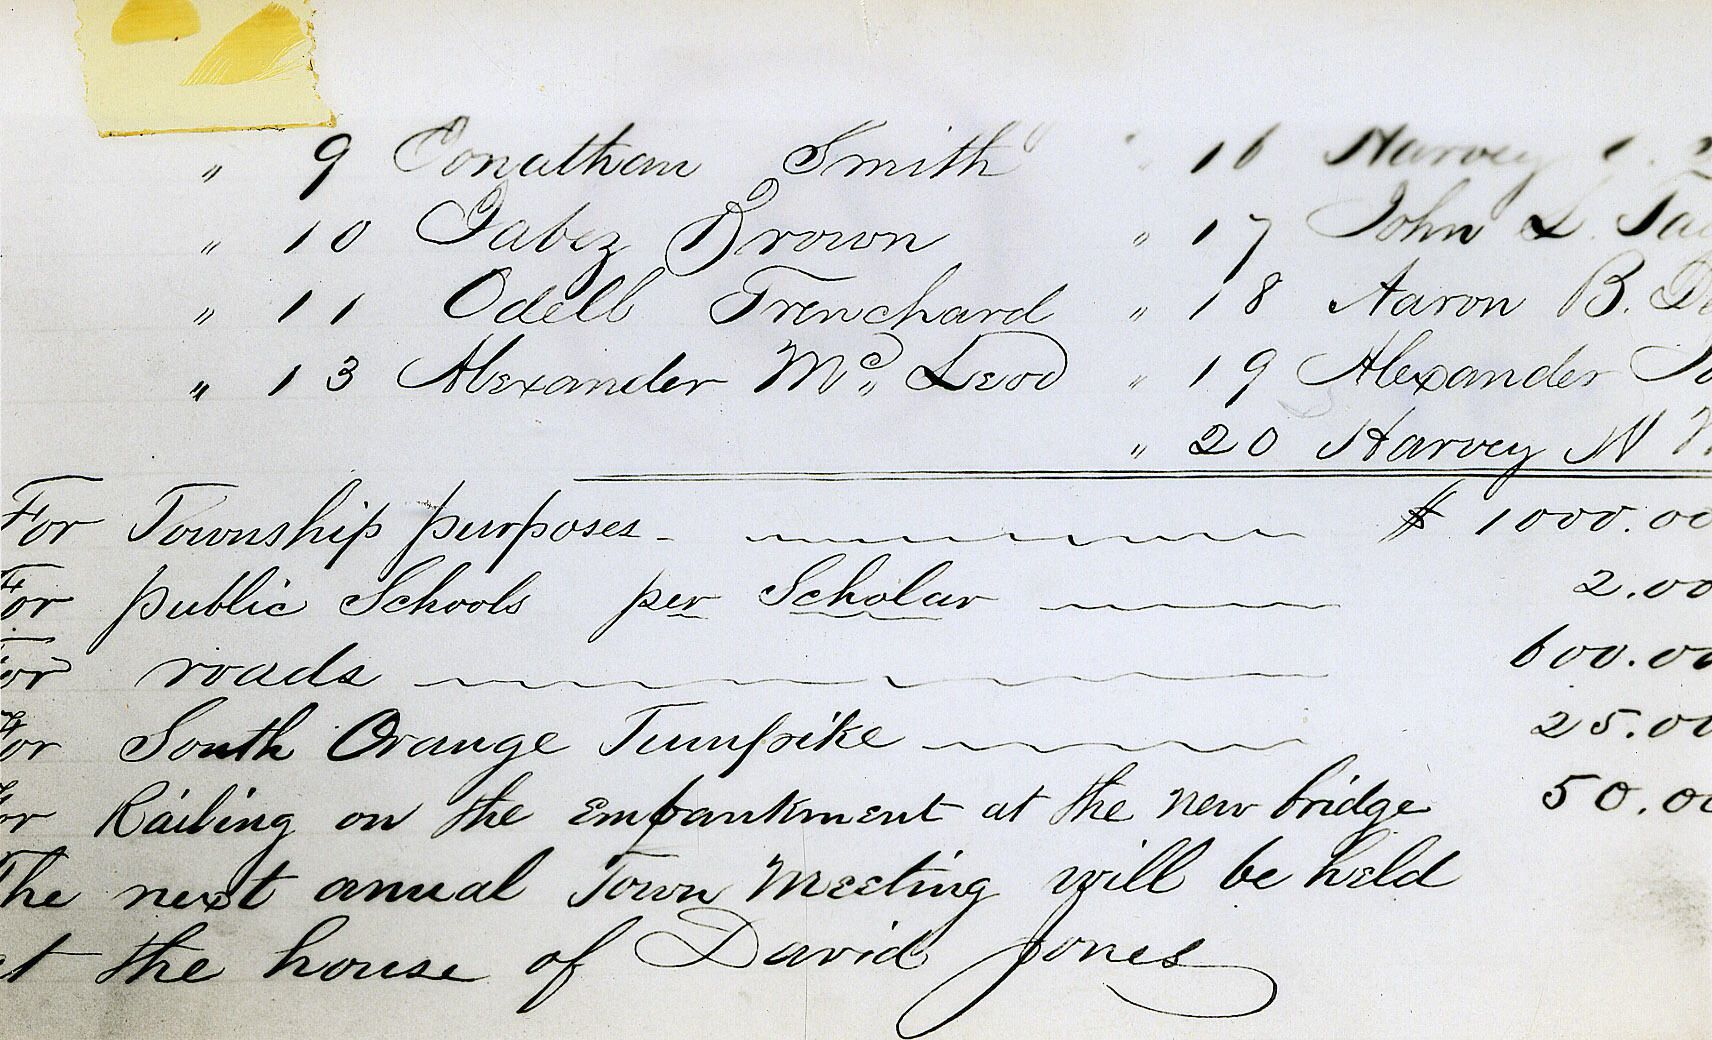 „ 9 Jonathan Smith „ 16 Harvey
„ 10 Jabez Brown „ 17 John L.
„ 11 Odell Trenchard „ 18 Aaron B.
„ 13 Alexander Mc„ Leod „ 19 Alexander
„ 20 Harvey N
For Township purposes - $ 1000.00
For public Schools per Scholar 2.00
For roads 600.00
For South Orange Turnpike 25.00
For Railing on the embankment at the new bridge 50.00
The next anual Town Meeting will be held
at the house of David Jones